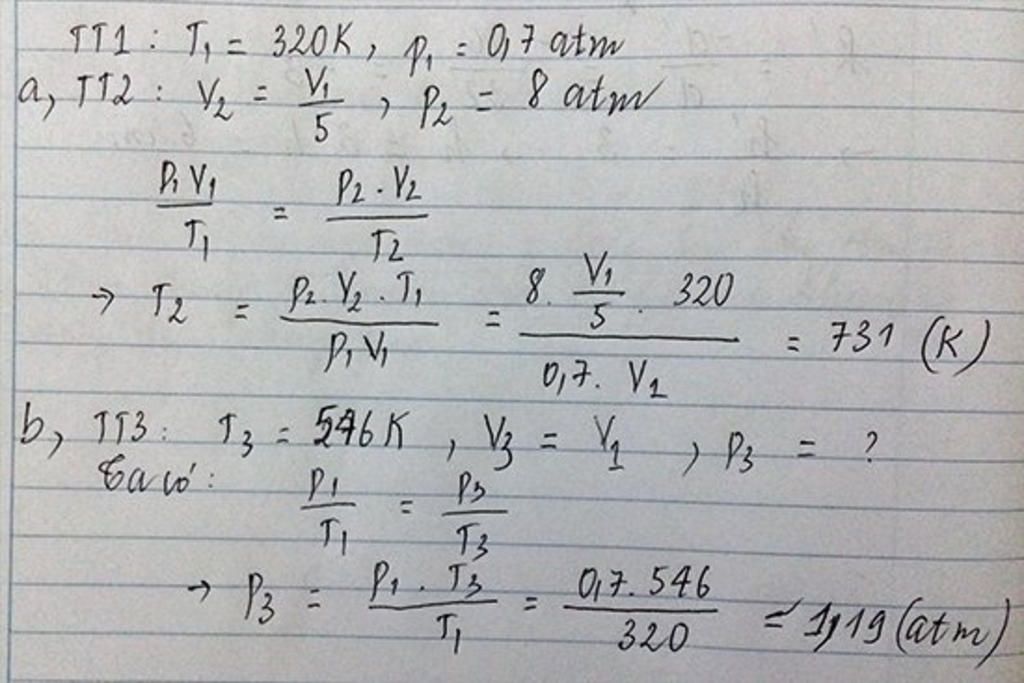 TT1 : T₁ = 320K, p₁ = 0,7 atm
a, TT2 : V₂ = V₁/5 , p₂ = 8 atm
p₁V₁/T₁ = p₂.V₂/T₂
→ T₂ = p₂.V₂.T₁/p₁V₁ = 8. V₁/5 . 320/0,7. V₁ = 731 (K)
b, TT3: T₃ = 546K , V₃ = V₁ , p₃ = ?
Ta có:
p₁/T₁ = p₃/T₃
→ p₃ = p₁.T₃/T₁ = 0,7.546/320 = 1,19 (atm)